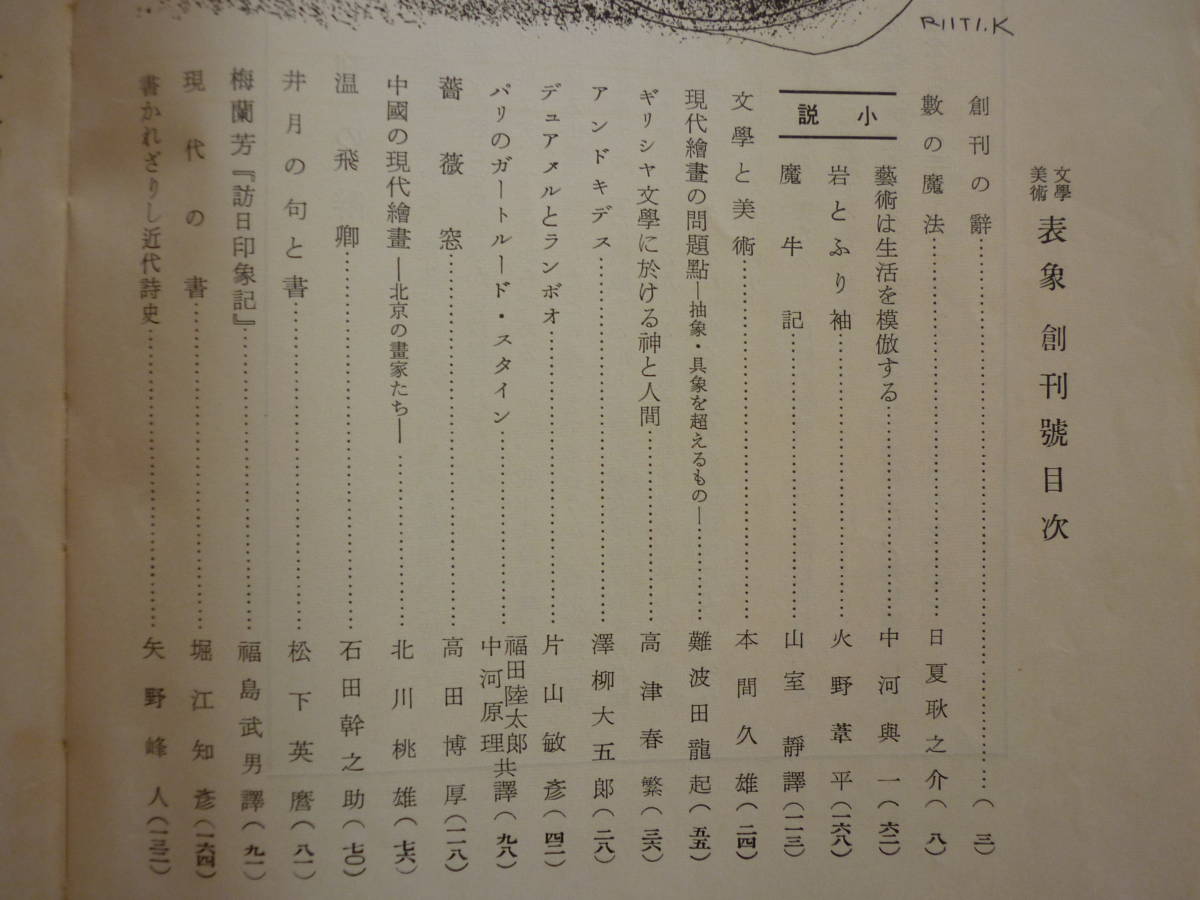 RIITI.K
文學
美術 表象 創刊號目次
創刊の辭……………………(三)
數の魔法……………………日夏耿之介(八)
藝術は生活を模倣する……………………中河與一(六二)
小説
岩とふり袖……………………火野葦平(一六八)
魔牛記……………………山室靜譯(一一三)
文學と美術……………………本間久雄(二四)
現代繪畫の問題點—抽象・具象を超えるもの—……………………難波田龍起(五五)
ギリシヤ文學に於ける神と人間……………………高津春繁(三六)
アンドキデス……………………澤柳大五郎(二八)
デュアメルとランボオ……………………片山敏彥(四二)
パリのガートルード・スタイン……………………福田陸太郎 中河原理共譯(九八)
薔薇窓……………………高田博厚(一二八)
中國の現代繪畫—北京の畫家たち—……………………北川桃雄(七六)
温飛卿……………………石田幹之助(七〇)
井月の句と書……………………松下英麿(八一)
梅蘭芳『訪日印象記』……………………福島武男譯(九一)
現代の書……………………堀江知彥(一六四)
書かれざりし近代詩史……………………矢野峰人(一三二)